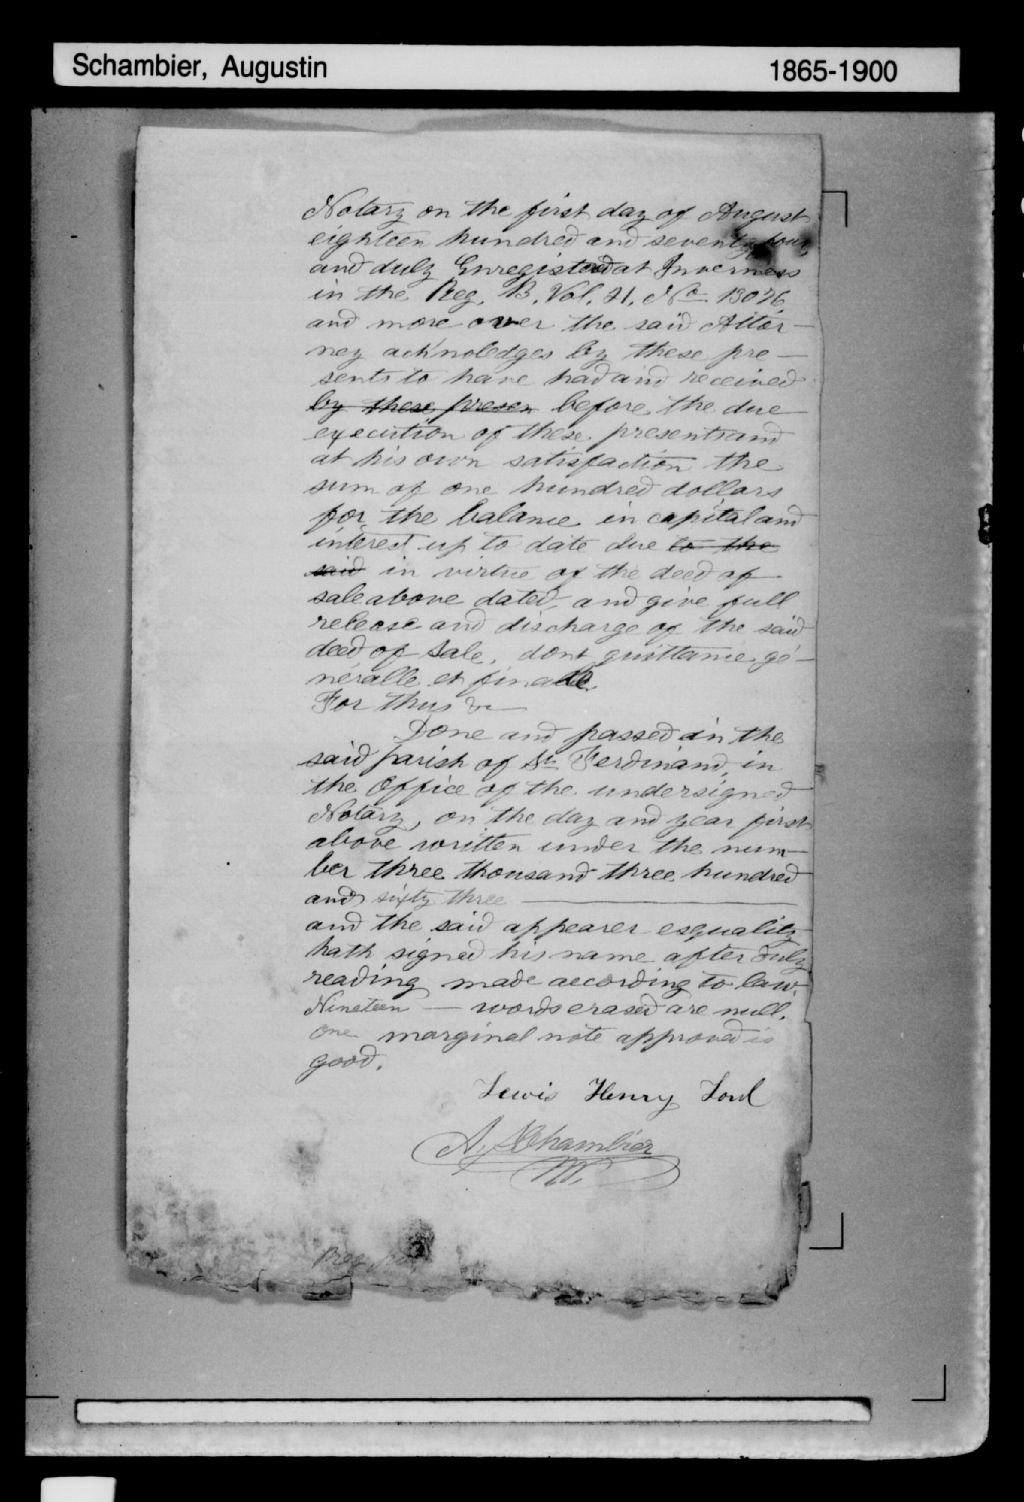 Schambier, Augustin 1865-1900
Notary on the first day of August
eighteen hundred and seventy four
and duly Enregistered at Inverness
in the Reg. B. Vol. 21. No 13076
and more over the said Attor-
ney acknoledges by these pre-
sents to have had and received
by these presen before the due
execution of these presents and
at his own satisfaction the
sum of one hundred dollars
for the balance in capital and
interest up to date due to the
said in virtue of the deed of
sale above dated, and give full
release and discharge of the said
deed of sale, dont quittance gé-
néralle et finalle.
For thus &c
Done and passed in the
said parish of St Ferdinand, in
the Office of the undersigned
Notary, on the day and year first
above written under the num-
ber three thousand three hundred
and sixty three
and the said appearer esquality
hath signed his name after duly
reading made according to law.
Nineteen — words erased are null.
One marginal note approved is
good.
Lewis Henry Lord
A. Schambier
N.P.